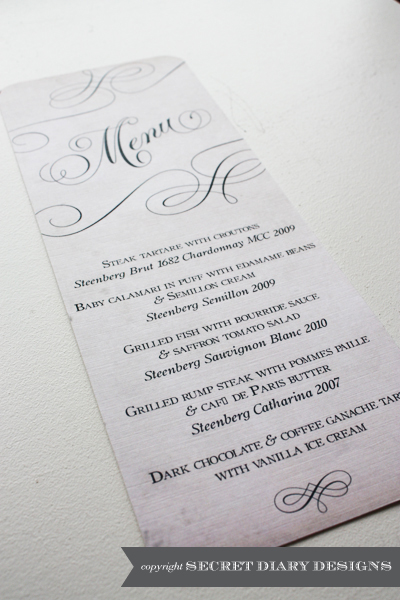 Menu
Steak tartare with croutons
Steenberg Brut 1682 Chardonnay MCC 2009
Baby calamari in puff with edamame beans
& Semillon cream
Steenberg Semillon 2009
Grilled fish with bourride sauce
& saffron tomato salad
Steenberg Sauvignon Blanc 2010
Grilled rump steak with pommes paille
& caf▯ de Paris butter
Steenberg Catharina 2007
Dark chocolate & coffee ganache tar
with vanilla ice cream
copyright SECRET DIARY DESIGNS